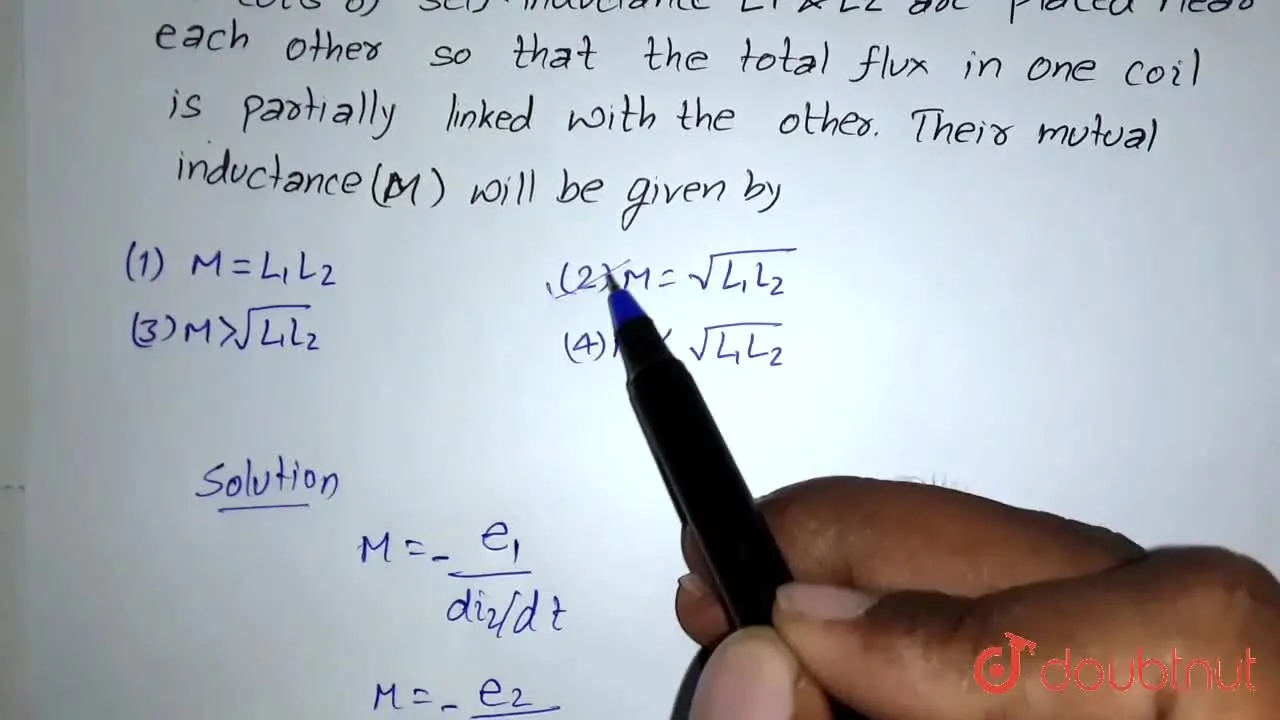 each other so that the total flux in one coil
is partially linked with the other. Their mutual
inductance (M) will be given by
(1) M = L₁L₂
(2) M = √L₁L₂
(3) M > √L₁L₂
(4) √L₁L₂
Solution
M = - e₁
di₂/dt
M = - e₂
doubtnut